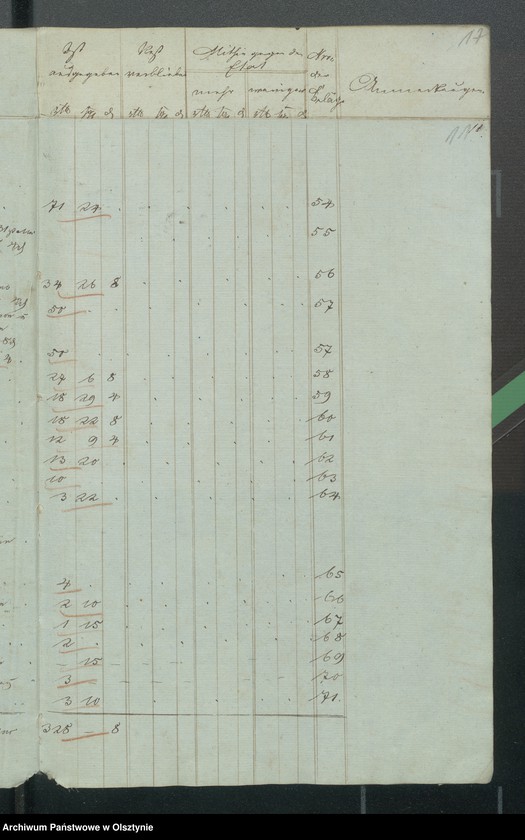 17
Ist Rest Mithin gegen den Nro.
ausgegeben verblieben Etat der Anmerkungen
mehr weniger Beläge
rtl. sg. d rtl. sg. d rtl. sg. d rtl. sg. d
71 24 . 54
55
34 26 8 56
50 . 57
50 . 57
24 6 8 58
18 29 4 59
18 22 8 60
12 9 4 61
13 20 62
10 . 63
3 22 . 64
4 . 65
2 10 66
1 15 67
2 . 68
- 15 69
3 - 70
3 10 71.
328 - 8
Archiwum Państwowe w Olsztynie